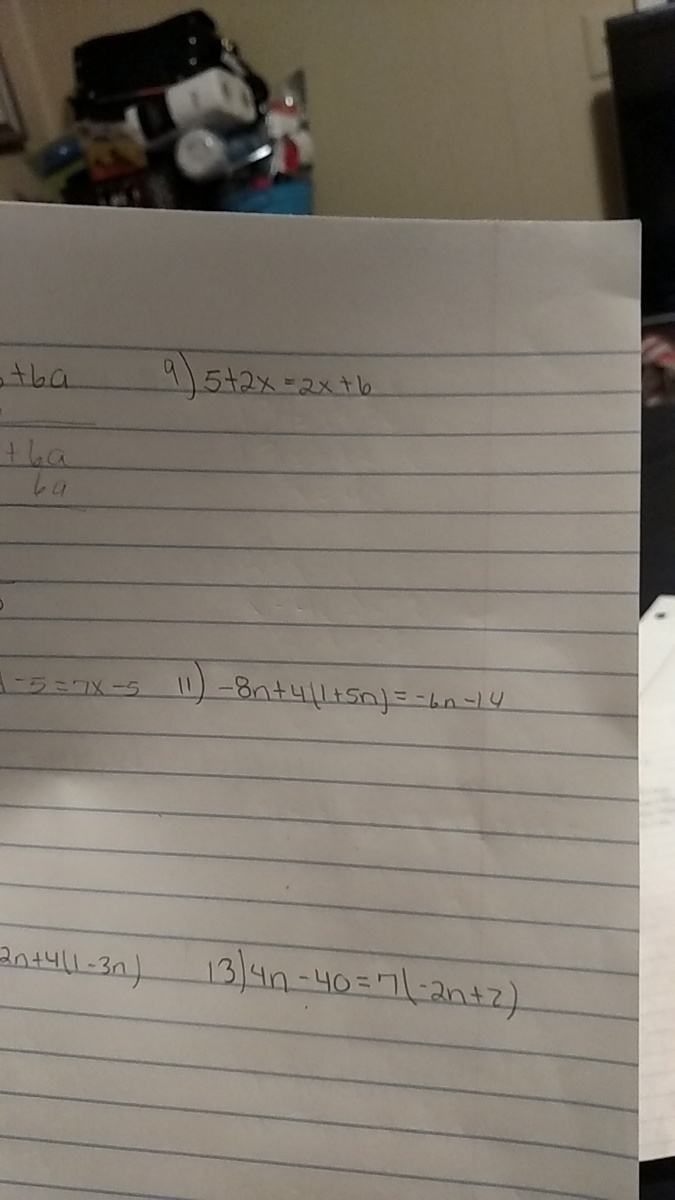 +6a 9) 5+2x=2x+6
+6a
6a
-5=7x-5 11) -8n+4(1+5n)=-6n-14
2n+4(1-3n) 13) 4n-40=7(-2n+2)